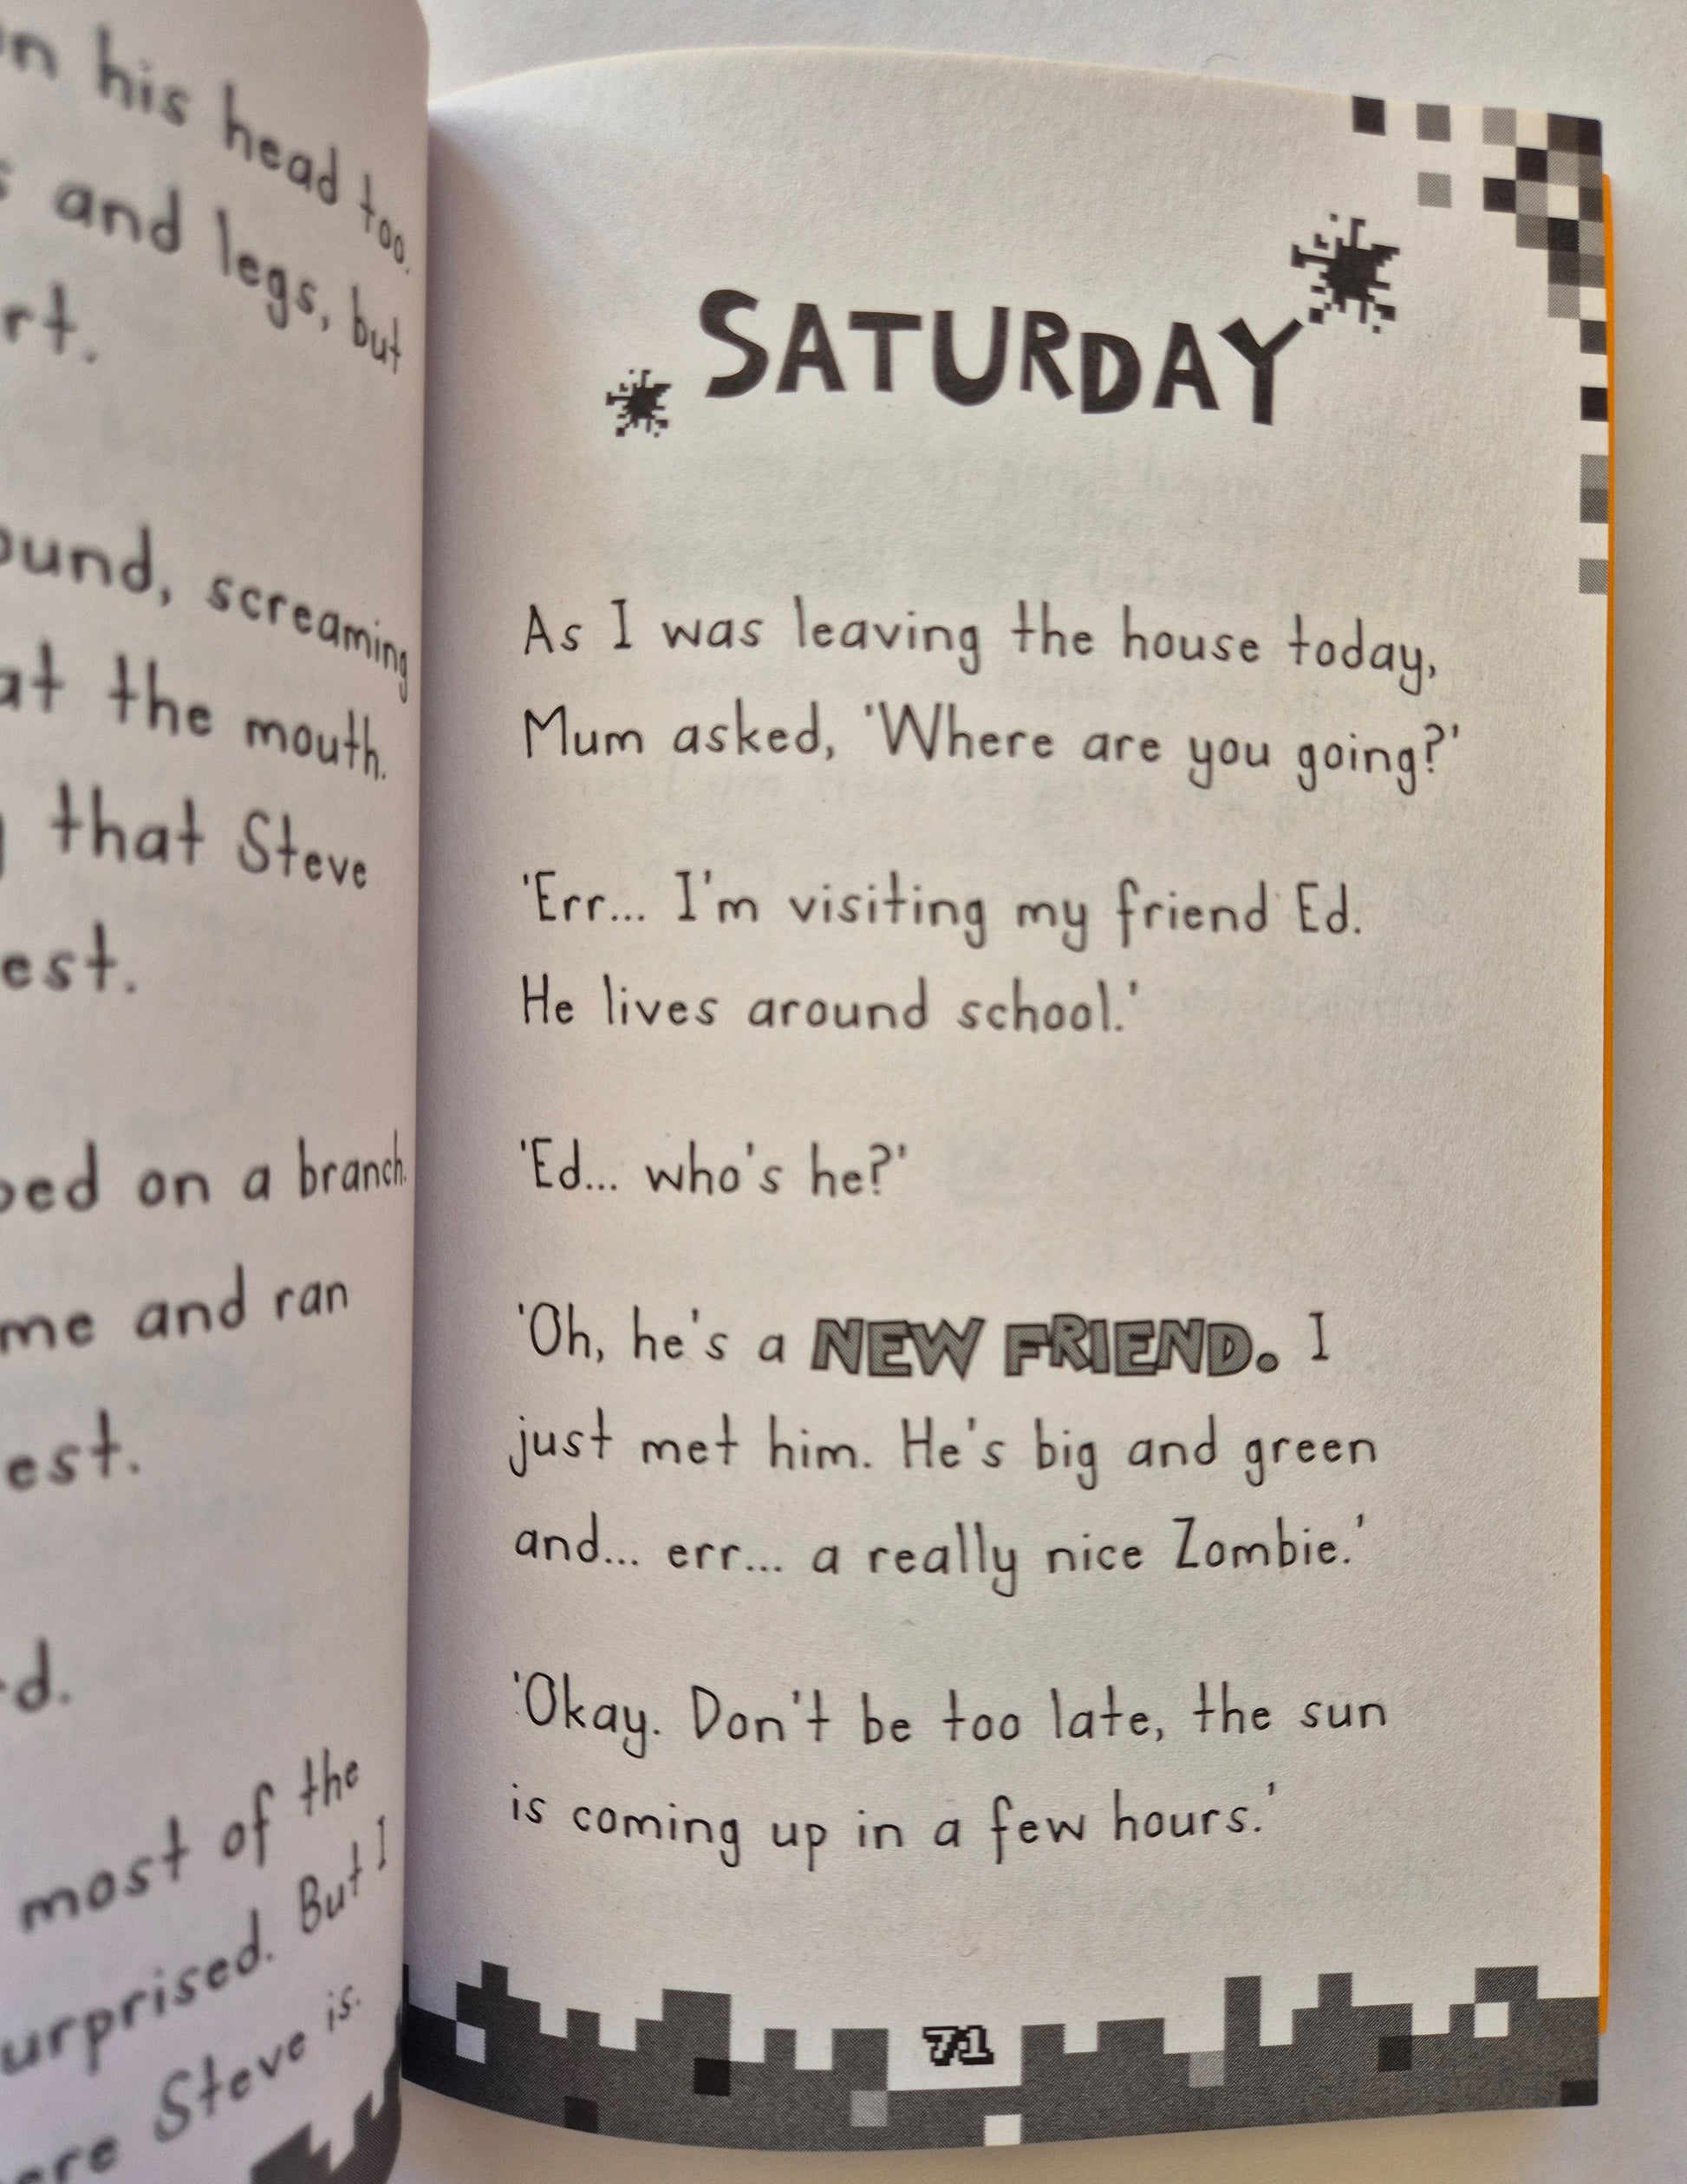 on his head too.
and legs, but
rt.
ound, screaming
at the mouth.
that Steve
est.
ped on a branch.
me and ran
est.
d.
most of the
urprised. But I
ere Steve is.
SATURDAY
As I was leaving the house today,
Mum asked, 'Where are you going?'
'Err... I'm visiting my friend Ed.
He lives around school.'
'Ed... who's he?'
'Oh, he's a NEW FRIEND. I
just met him. He's big and green
and... err... a really nice Zombie.'
'Okay. Don't be too late, the sun
is coming up in a few hours.'
71